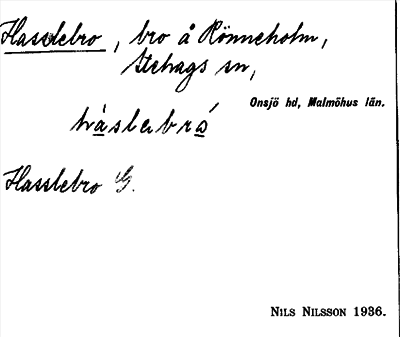 Hasslebro, bro å Rönneholm,
Stehags sn,
Onsjö hd, Malmöhus län.
hàslebrá
Hasslebro G.
NILS NILSSON 1936.